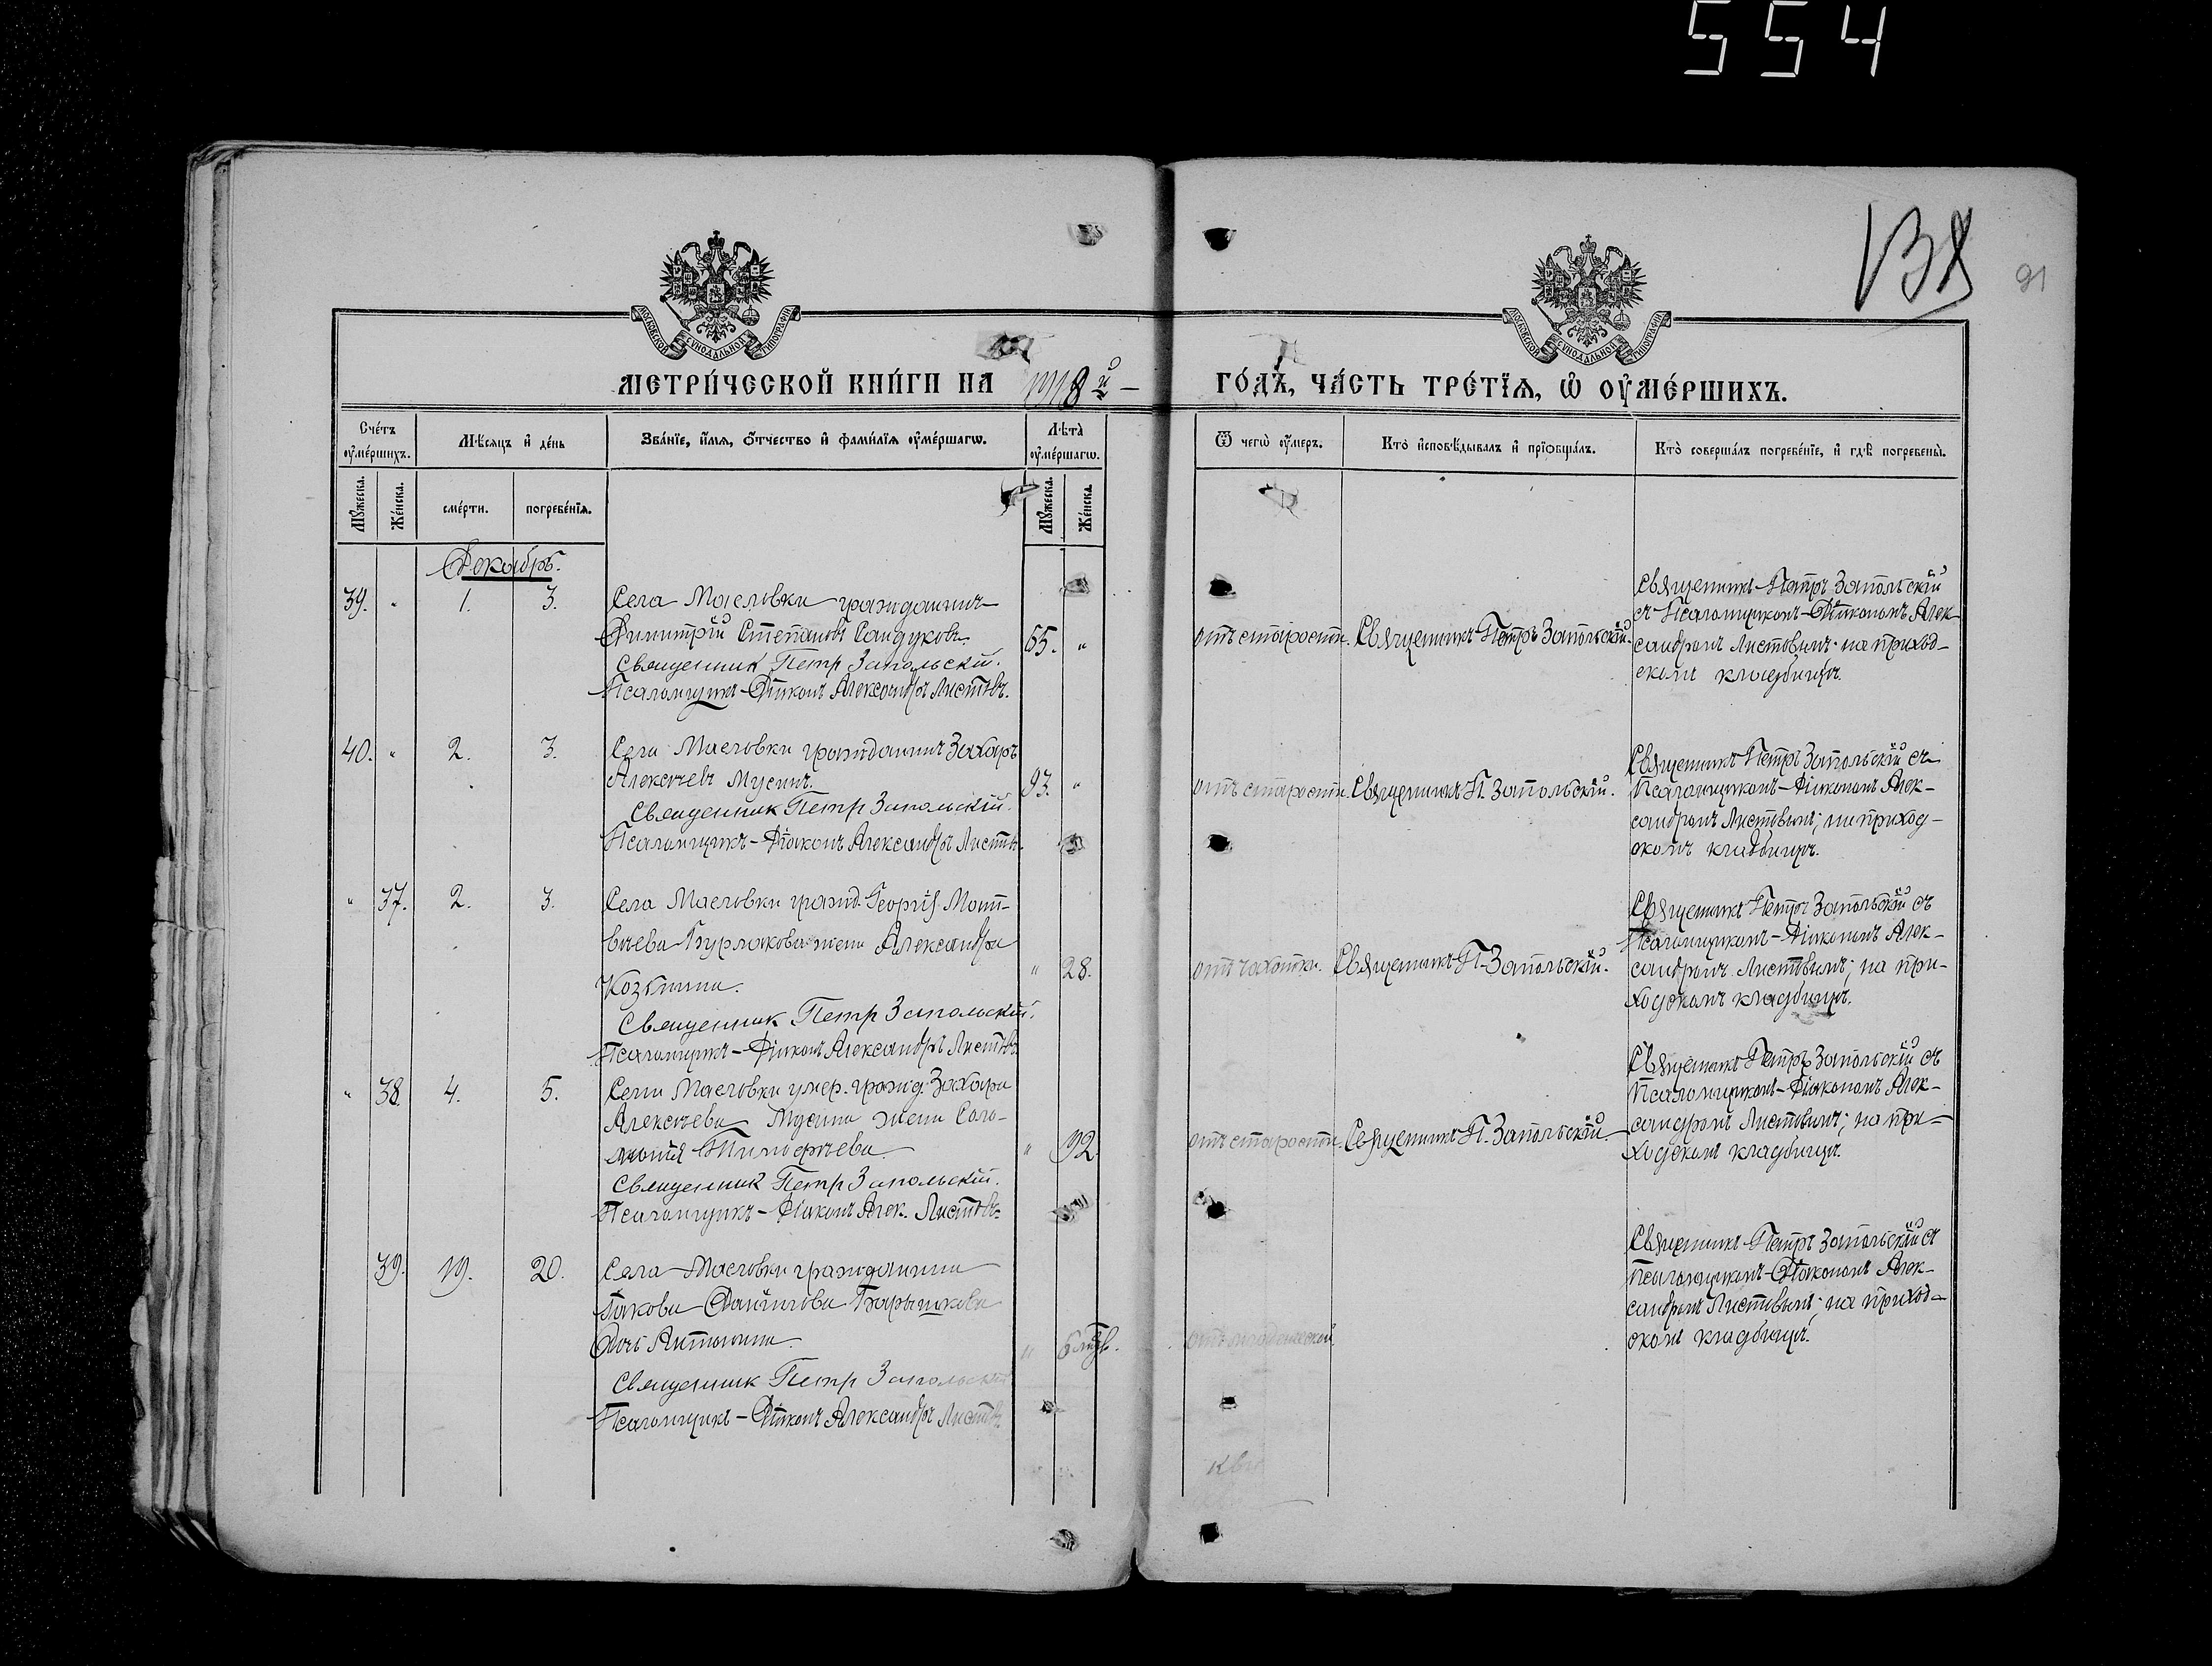 554
138
91
МОСКОВСКОЙ СѴНОДАЛЬНОЙ ТИПОГРАФІИ
МОСКОВСКОЙ СѴНОДАЛЬНОЙ ТИПОГРАФІИ
МЕТРИ́ЧЕСКОЙ КНИ́ГИ НА 1918й – ГО́ДЪ, ЧА́СТЬ ТРЕ́ТІЯ, Ѡ҆ ОУ҆МЕ́РШИХЪ.
Сче́тъ оу҆ме́ршихъ.
Мѣ́сяцъ и҆ де́нь
Зва́нїе, и҆́мя, ѻ҆́тчество и҆ фами́лїя оу҆ме́ршагѡ.
Лѣта̀ оу҆ме́ршагѡ.
Ѿ чегѡ̀ оу҆́меръ.
Кто̀ и҆сповѣ́дывалъ и҆ прїѡбща́лъ.
Кто̀ соверша́лъ погребе́нїе, и҆ гдѣ̀ погребены̀.
Мꙋ́жеска.
Же́нска.
сме́рти.
погребе́нїя.
Мꙋ́жеска.
Же́нска.
Декабрь.
39. " 1. 3.
Села Масловки гражданинъ
Димитрій Стефановъ Сандуковъ.
Священник Петр Запольскій.
Псаломщикъ-Діаконъ Александръ Листовъ.
65. "
отъ старости. Священникъ Петръ Запольскій.
Священникъ Петръ Запольскій
съ Псаломщикомъ-Діакономъ Алек-
сандромъ Листовымъ; на приход-
скомъ кладбищѣ.
40. " 2. 3.
Села Масловки гражданинъ Захаръ
Алексѣевъ Мусинъ.
Священник Петр Запольскій.
Псаломщикъ-Діаконъ Александръ Листовъ.
93. "
отъ старости. Священникъ П. Запольскій.
Священникъ Петръ Запольскій съ
Псаломщикомъ-Діакономъ Алек-
сандромъ Листовымъ; на приход-
скомъ кладбищѣ.
" 37. 2. 3.
Села Масловки гражд. Георгія Мат-
вѣева Бурлакова жена Александра
Козьмина.
Священник Петр Запольскій.
Псаломщикъ-Діаконъ Александръ Листовъ.
" 28.
отъ чахотки. Священникъ П. Запольскій.
Священникъ Петръ Запольскій съ
Псаломщикомъ-Діакономъ Алек-
сандромъ Листовымъ; на при-
ходскомъ кладбищѣ.
" 38. 4. 5.
Села Масловки умер. гражд. Захара
Алексѣева Мусина жена Соло-
монія Тимофѣева.
Священник Петр Запольскій.
Псаломщикъ-Діаконъ Алек. Листовъ.
" 92.
отъ старости. Священникъ П. Запольскій.
Священникъ Петръ Запольскій съ
Псаломщикомъ-Діакономъ Алек-
сандромъ Листовымъ; на при-
ходскомъ кладбищѣ.
39. 19. 20.
Села Масловки гражданина
Іакова Даніилова Барышкова
дочь Антонина.
Священник Петр Запольскій
Псаломщикъ-Діаконъ Александръ Листовъ
"
Священникъ Петръ Запольскій съ
Псаломщикомъ-Діакономъ Алек-
сандромъ Листовымъ; на приход-
скомъ кладбищѣ.